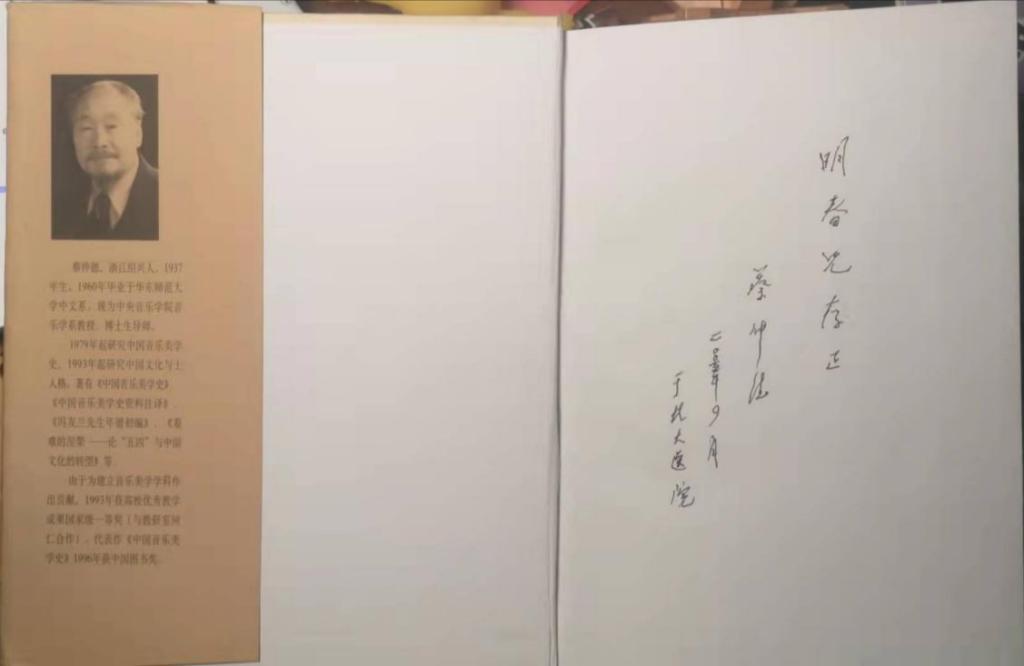 蔡仲德,浙江绍兴人,1937
年生。1960年毕业于华东师范大
学中文系。现为中央音乐学院音
乐学系教授、博士生导师。
1979年起研究中国音乐美学
史,1993年起研究中国文化与士
人格。著有《中国音乐美学史》
《中国音乐美学史资料注译》、
《冯友兰先生年谱初编》、《艰
难的涅槃——论“五四”与中国
文化的转型》等。
由于为建立音乐美学学科作
出贡献,1993年获高校优秀教学
成果国家级一等奖(与教研室同
仁合作)。代表作《中国音乐美
学史》1996年获中国图书奖。
明春兄存正
蔡仲德
年九月
于北大医院